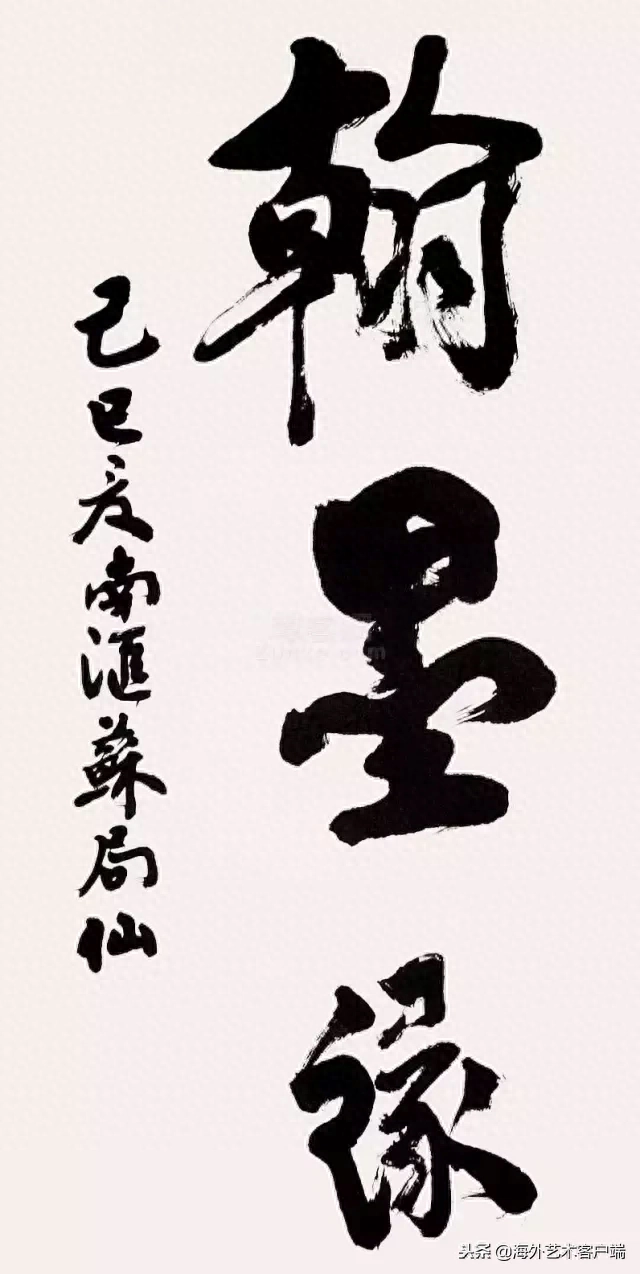 翰墨緣
己巳夏南滙蘇局仙
头条 @海外艺术客户端